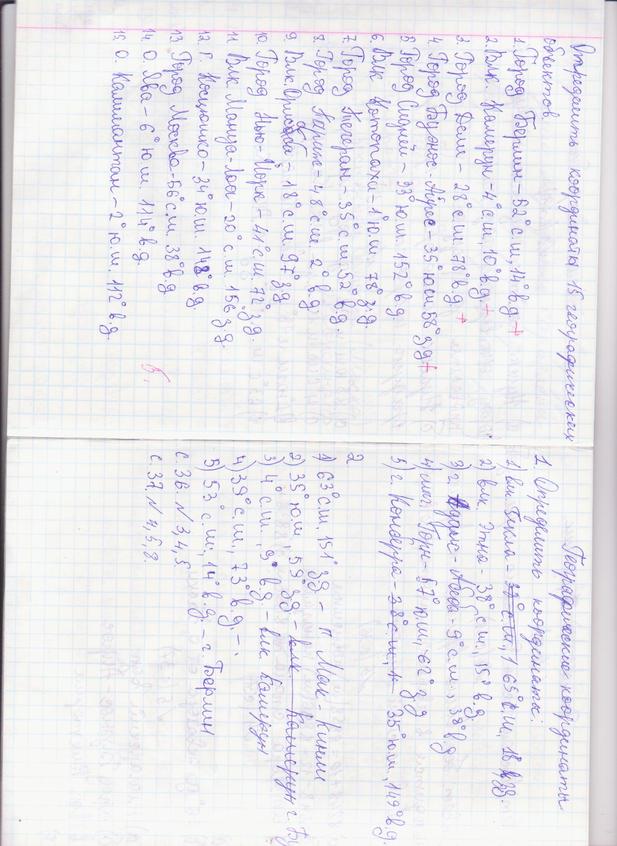 Определить координаты 15 географических
объектов
1. Город Берлин – 52° с.ш, 14° в.д +
2. Влк. Камерун – 4° с.ш, 10° в.д +
3. Город Дели – 28° с.ш 78° в.д +
4. Город Буэнос-Айрес – 35° ю.ш 58° з.д +
5 Город Сидней – 33° ю.ш. 152° в.д
6 Влк Котопахи – 1° ю.ш. 78° з.д.
7. Город Тегеран – 35° с.ш 52° в.д.
8. Город Париж – 48° с.ш 2° в.д
9. Влк Орисаба – 18° с.ш. 97° з.д
10. Город Нью-Йорк – 41° с.ш 72° з.д.
11 Влк Мануа-Лоа – 20° с.ш 156 з.д.
12. Г. Косцюшко – 34° ю.ш 148° в.д.
13 Город Москва – 56° с.ш. 38° в.д
14. О. Ява – 6° ю.ш 114° в.д.
15 О. Калимантан – 2° ю.ш. 112° в.д.
5.
Географические координаты
1. Определить координаты:
1) влк Гекла – 65° с.ш, 18 з.д.
2) влк. Этна – 38° с.ш., 15° в.д
3) г. Аддис-Абеба – 9° с.ш., 38° в.д
4) мыс Горн – 57° ю.ш, 62° з.д
5) г. Канберра – 35° ю.ш., 149° в.д.
2
1) 63° с.ш 151° з.д – г. Мак-Кинли
2) 35° ю.ш, 59° з.д – влк Камерун г. Бу
3) 4° с.ш, 9° в.д – влк Камерун
4) 39° с.ш., 73° в.д. –
5) 53° с.ш., 14° в.д. – г. Берлин
с. 36. № 3, 4, 5
с. 37. № 4, 5, 8.